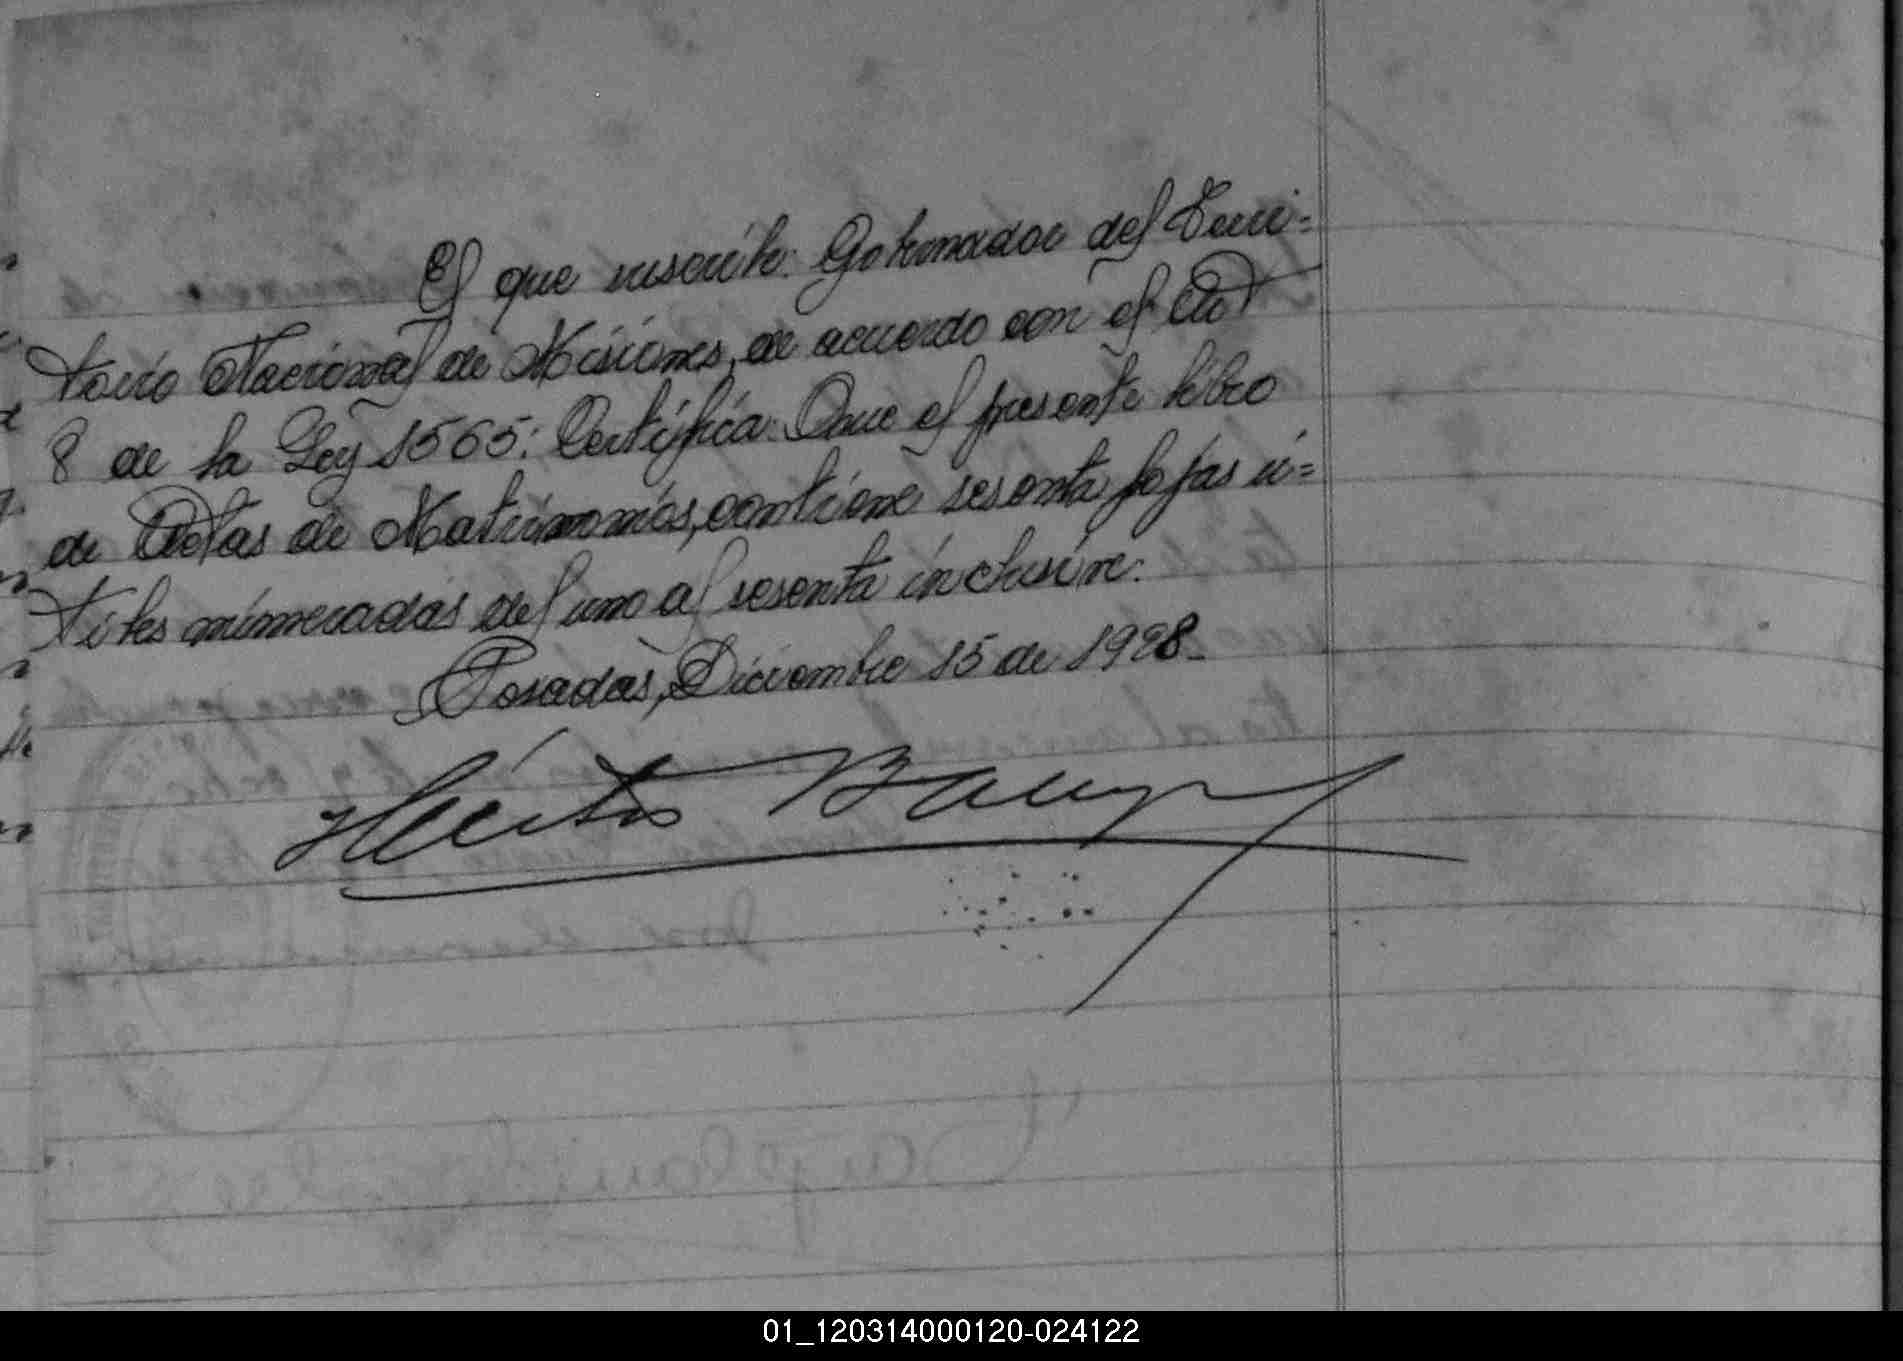 El que suscribe: Gobernador del Terri=
torio Nacional de Misiones, de acuerdo con el Art
8 de la Ley 1565: Certifica: Que el presente libro
de Actas de Matrimonios, contiene sesenta fojas ú=
tiles númeradas del uno al sesenta inclusive:
Posadas, Diciembre 15 de 1928_
Héctor Barreyro
01_120314000120-024122